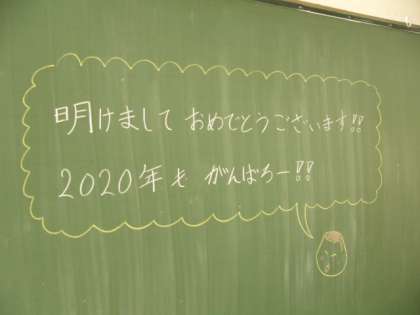 明けまして おめでとうございます!!
2020年も がんばろー!!